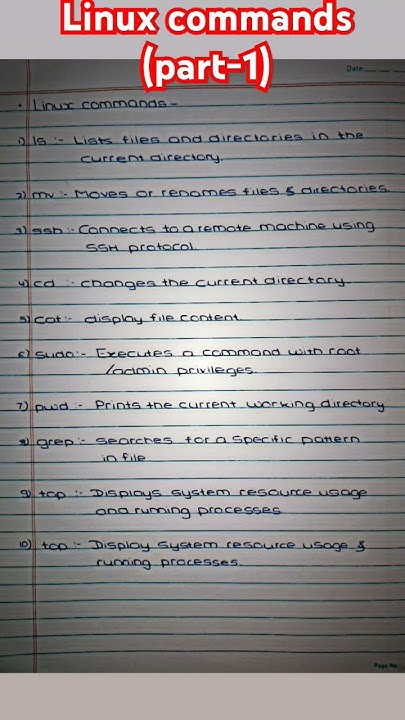 Linux commands
(part-1)
Date
• Linux commands -
1) ls :- Lists files and directories in the
current directory.
2) mv :- Moves or renames files & directories.
3) ssh :- Connects to a remote machine using
SSH protocol.
4) cd :- changes the current directory.
5) cat :- display file content.
6) sudo :- Executes a command with root
/admin privileges.
7) pwd :- Prints the current working directory
8) grep :- searches for a specific pattern
in file
9) top :- Displays system resource usage
and running processes.
10) top :- Display system resource usage &
running processes.
Page No.